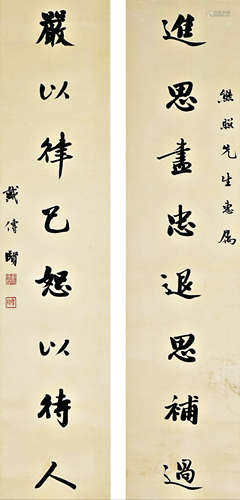 熊照先生惠属
進思盡忠退思補過
嚴以律己恕以待人
戴傳賢